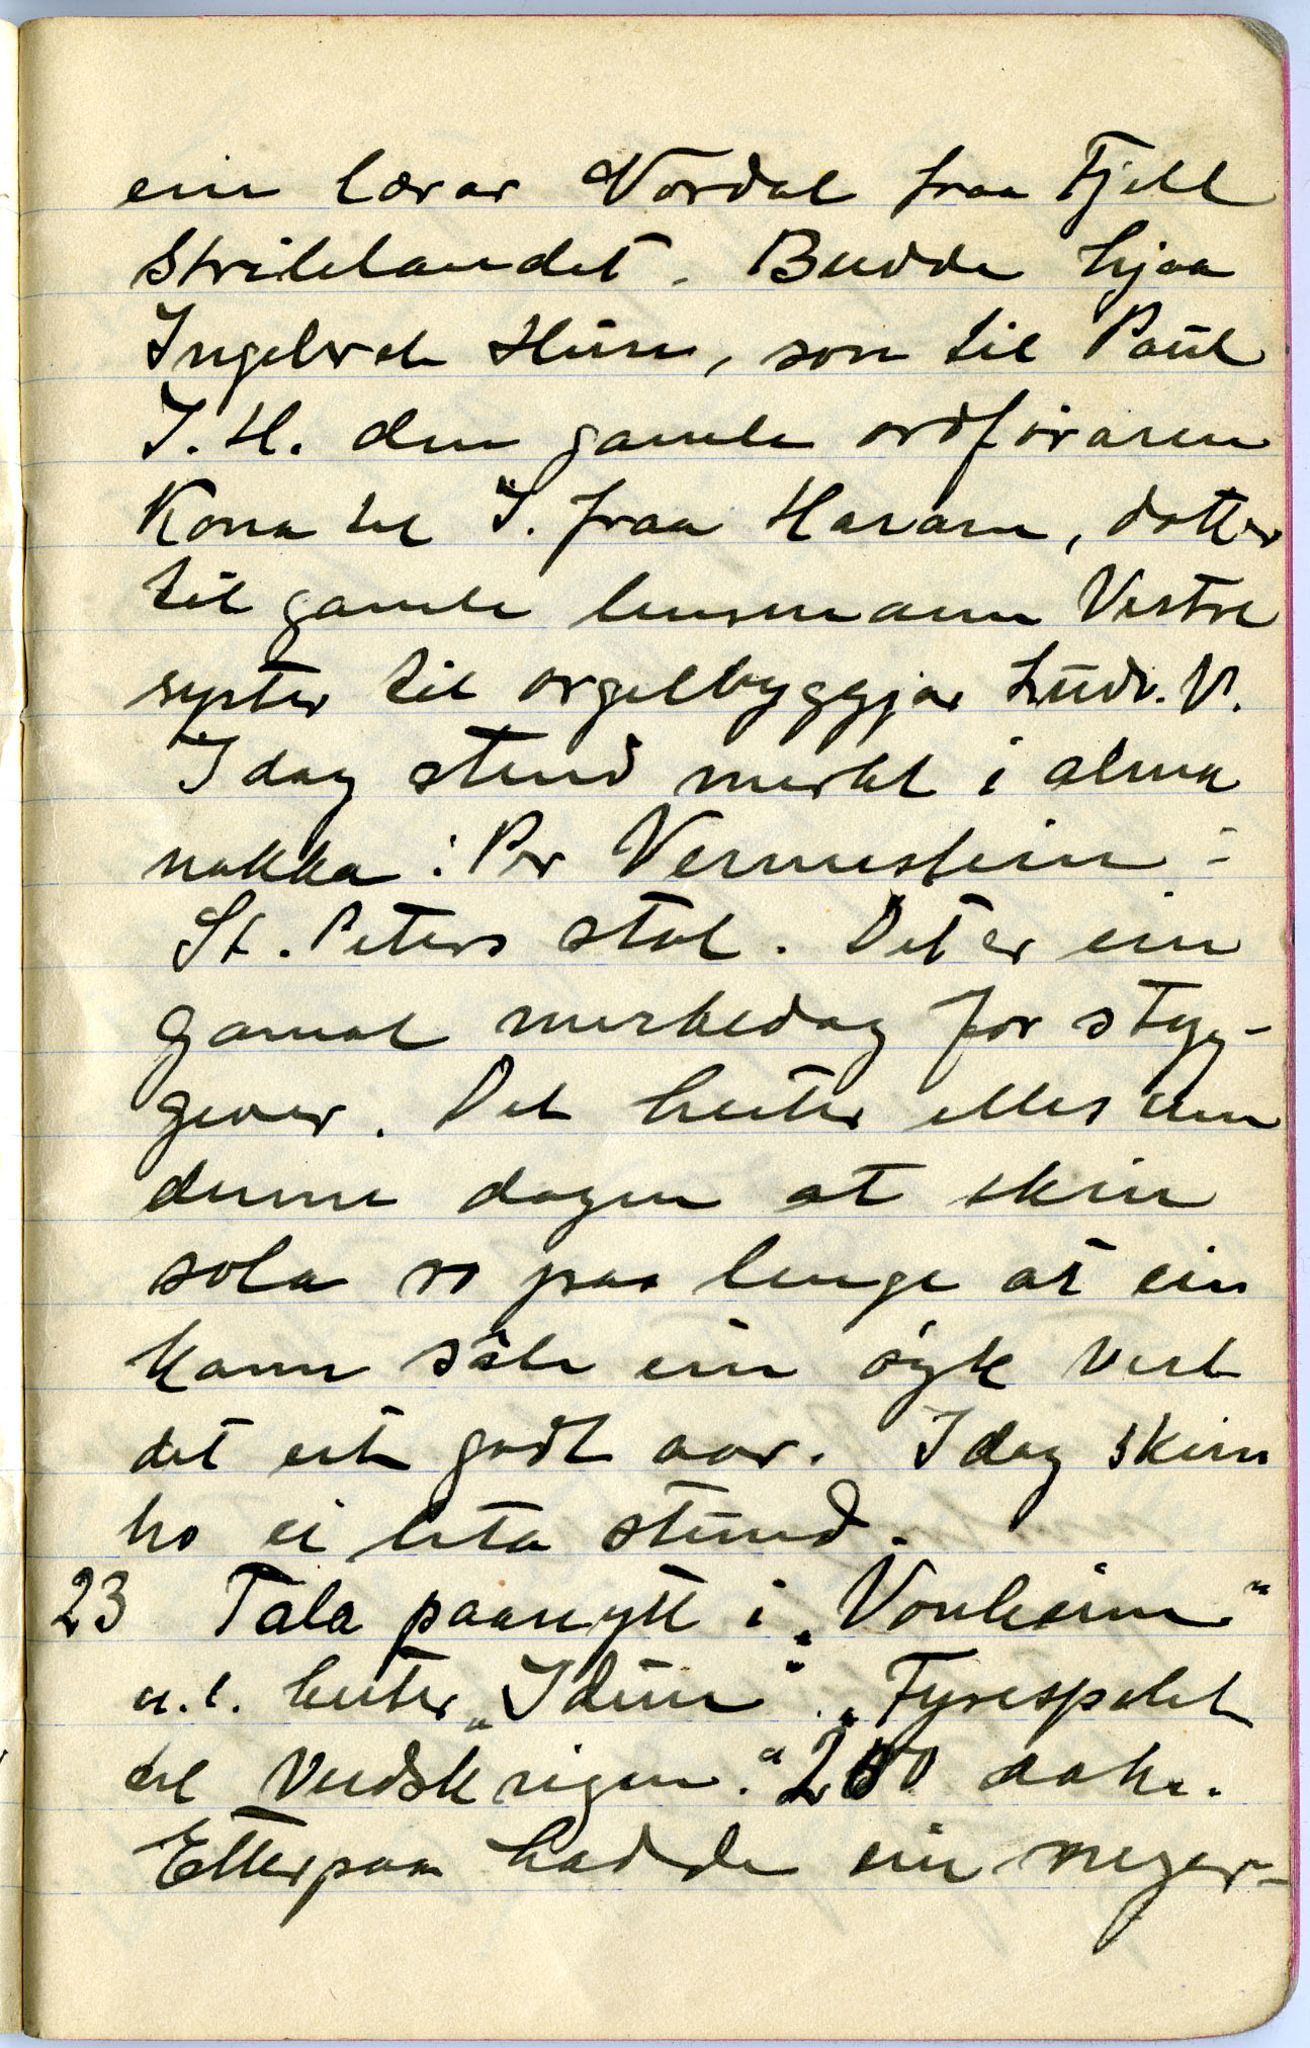 ein lærar Vordal fraa Fjell
Strilelandet. Budde hjaa
Ingebret Huse, son til Paul
I. H. den gamle ordføraren
Kona til I. fraa Haram, dotter
til gamle lensmann Vestre
syster til orgelbyggjar Ludv. V.
I dag stend merkt i alma
nakka: Per Varmestein -
St. Peters stol. Det er ein
gamal merkedag for styg-
gever. Det heiter elles um
denne dagen at skin
sola so paa lenge at ein
kann såle ein øyk vert
det eit godt aar. I dag skein
ho ei lita stund.
23 Tala paanytt i „Vonheim“
u.l. heiter „Idun“. „Fyrespelet
til Verdskrigen.“ 200 aah.
Etterpaa hadde ein neger-